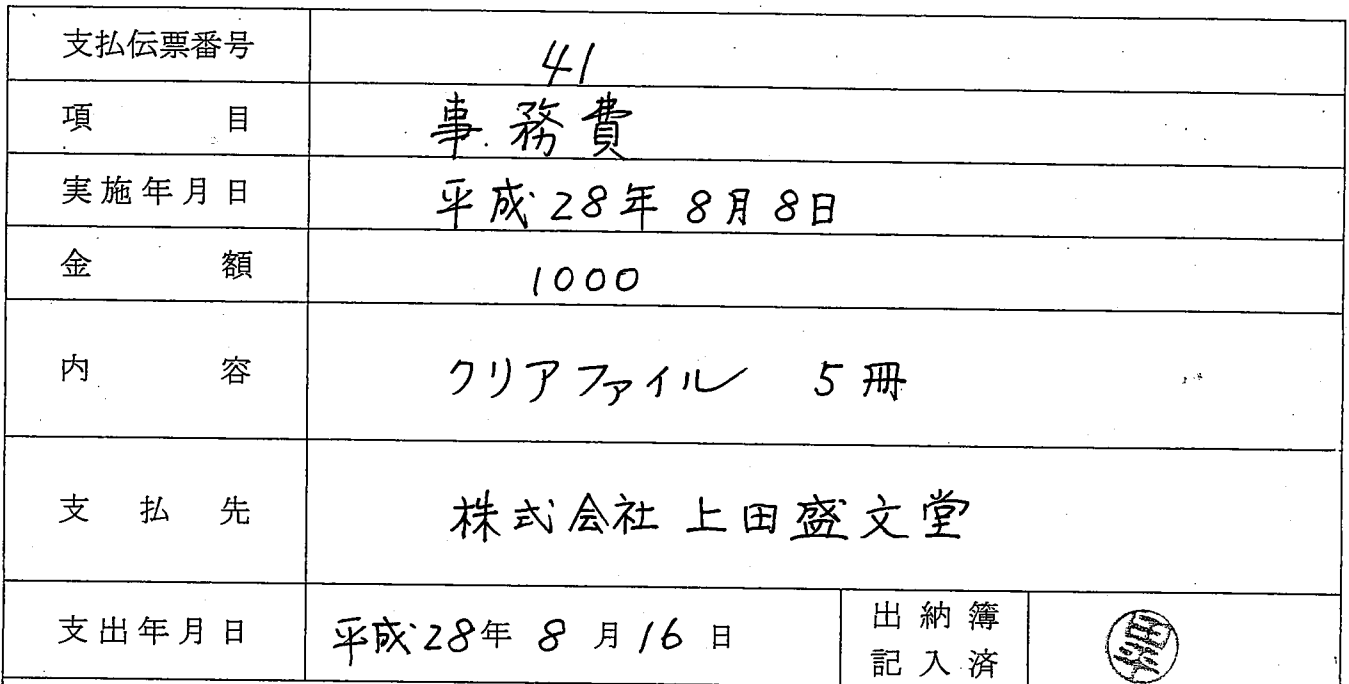 支払伝票番号 41
項目 事務費
実施年月日 平成28年8月8日
金額 1000
内容 クリアファイル 5冊
支払先 株式会社 上田盛文堂
支出年月日 平成28年8月16日 出納簿
記入済